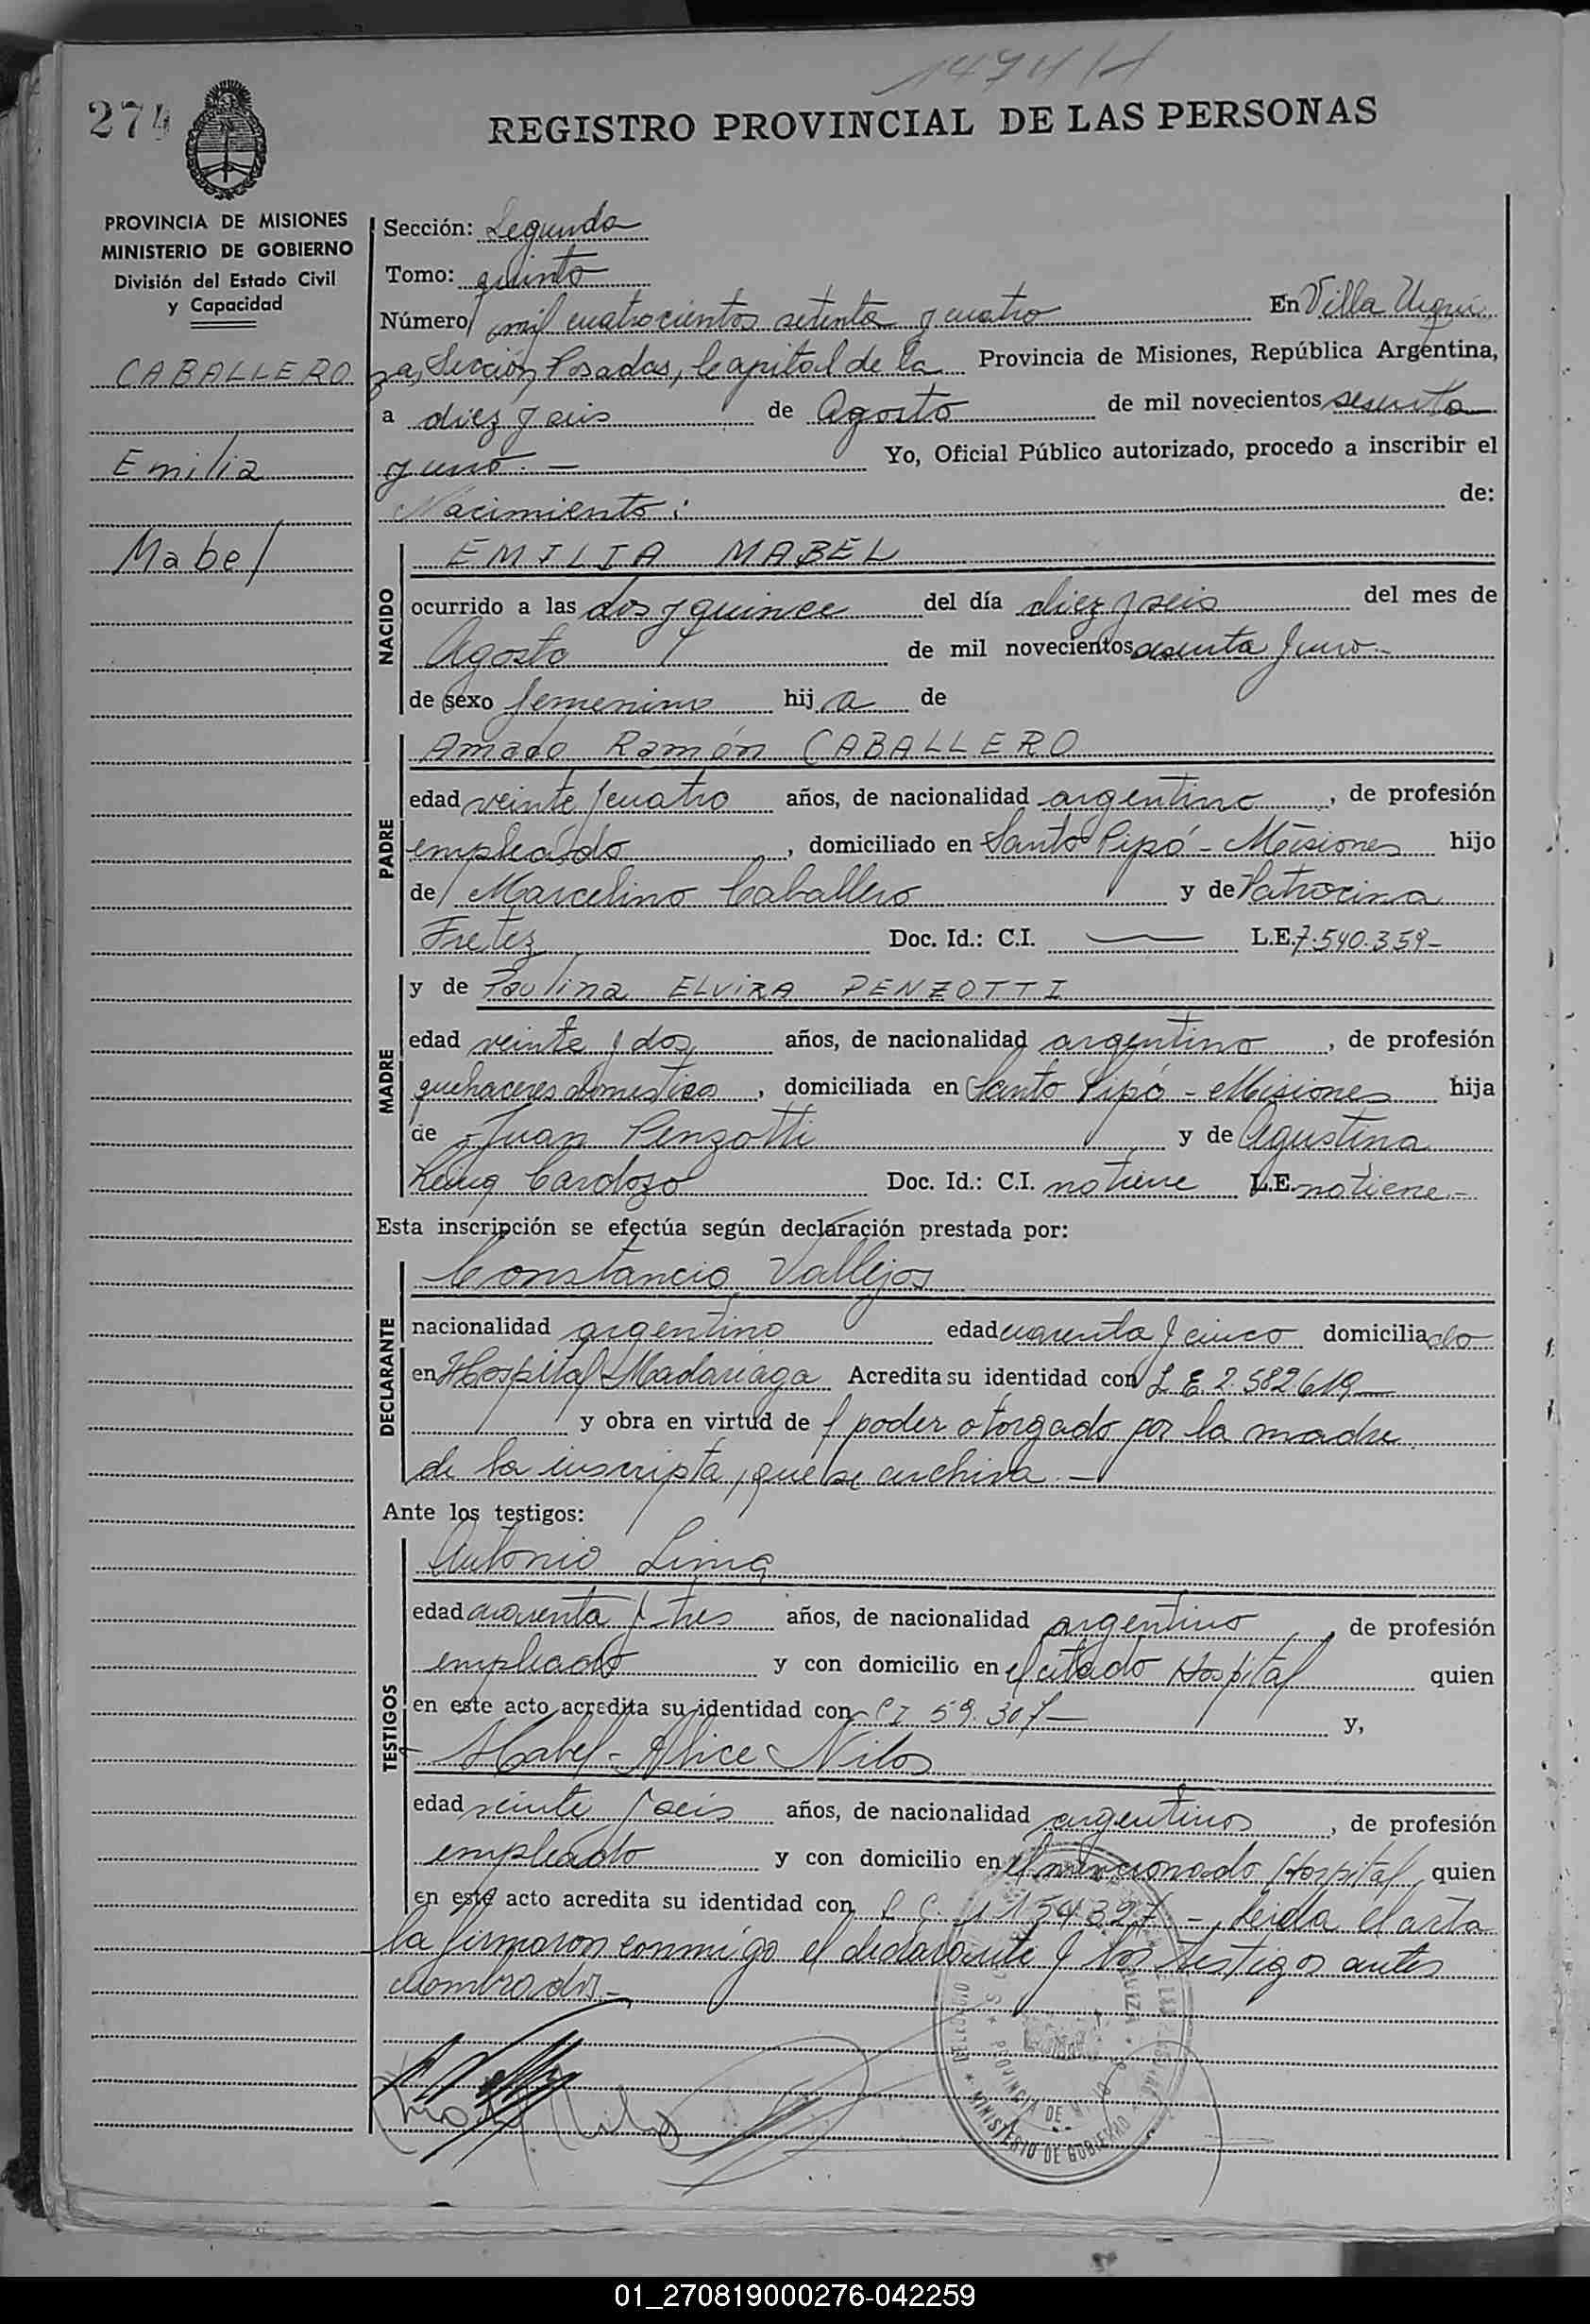 274
REGISTRO PROVINCIAL DE LAS PERSONAS
PROVINCIA DE MISIONES
MINISTERIO DE GOBIERNO
División del Estado Civil
y Capacidad
CABALLERO
Emilia
Mabel
Sección: Segunda
Tomo: quinto
Número mil cuatrocientos setenta y cuatro En Villa Urqui
za, Sección Posadas, Capital de la Provincia de Misiones, República Argentina,
a diez y seis de Agosto de mil novecientos sesenta
y uno.— Yo, Oficial Público autorizado, procedo a inscribir el
Nacimiento: de:
NACIDO
EMILIA MABEL
ocurrido a las dos y quince del día diez y seis del mes de
Agosto de mil novecientos sesenta y uno.-
de sexo femenino hij a de
PADRE
Amado Ramón CABALLERO
edad veinte y cuatro años, de nacionalidad argentino, de profesión
empleado, domiciliado en Santo Pipó - Misiones hijo
de Marcelino Caballero y de Patrocina
Fretez Doc. Id.: C.I. — L.E. 7.540.359-
MADRE
y de Paulina ELVIRA PENZOTTI
edad veinte y dos años, de nacionalidad argentino, de profesión
quehaceres domestico, domiciliada en Santo Pipó - Misiones hija
de Juan Penzotti y de Agustina
Cardozo Doc. Id.: C.I. no tiene L.E. no tiene.-
Esta inscripción se efectúa según declaración prestada por:
DECLARANTE
Constancio Vallejos
nacionalidad argentino edad cuarenta y cinco domiciliado
en Hospital Madariaga Acredita su identidad con L E. 2.582.619—
y obra en virtud de poder otorgado por la madre
de la inscripta, que se archiva.—
Ante los testigos:
TESTIGOS
Antonio Lima
edad cuarenta y tres años, de nacionalidad argentino, de profesión
empleado y con domicilio en el citado Hospital quien
en este acto acredita su identidad con CI 59.307— y,
Mabel Alice Nilos
edad veinte y seis años, de nacionalidad argentinos, de profesión
empleado y con domicilio en el mencionado Hospital, quien
en este acto acredita su identidad con L C. 1154.327 - Leida el acta
la firmaron conmigo el declarante y los testigos antes
nombrados.-
MINISTERIO DE GOBIERNO
PROVINCIA DE
01_270819000276-042259